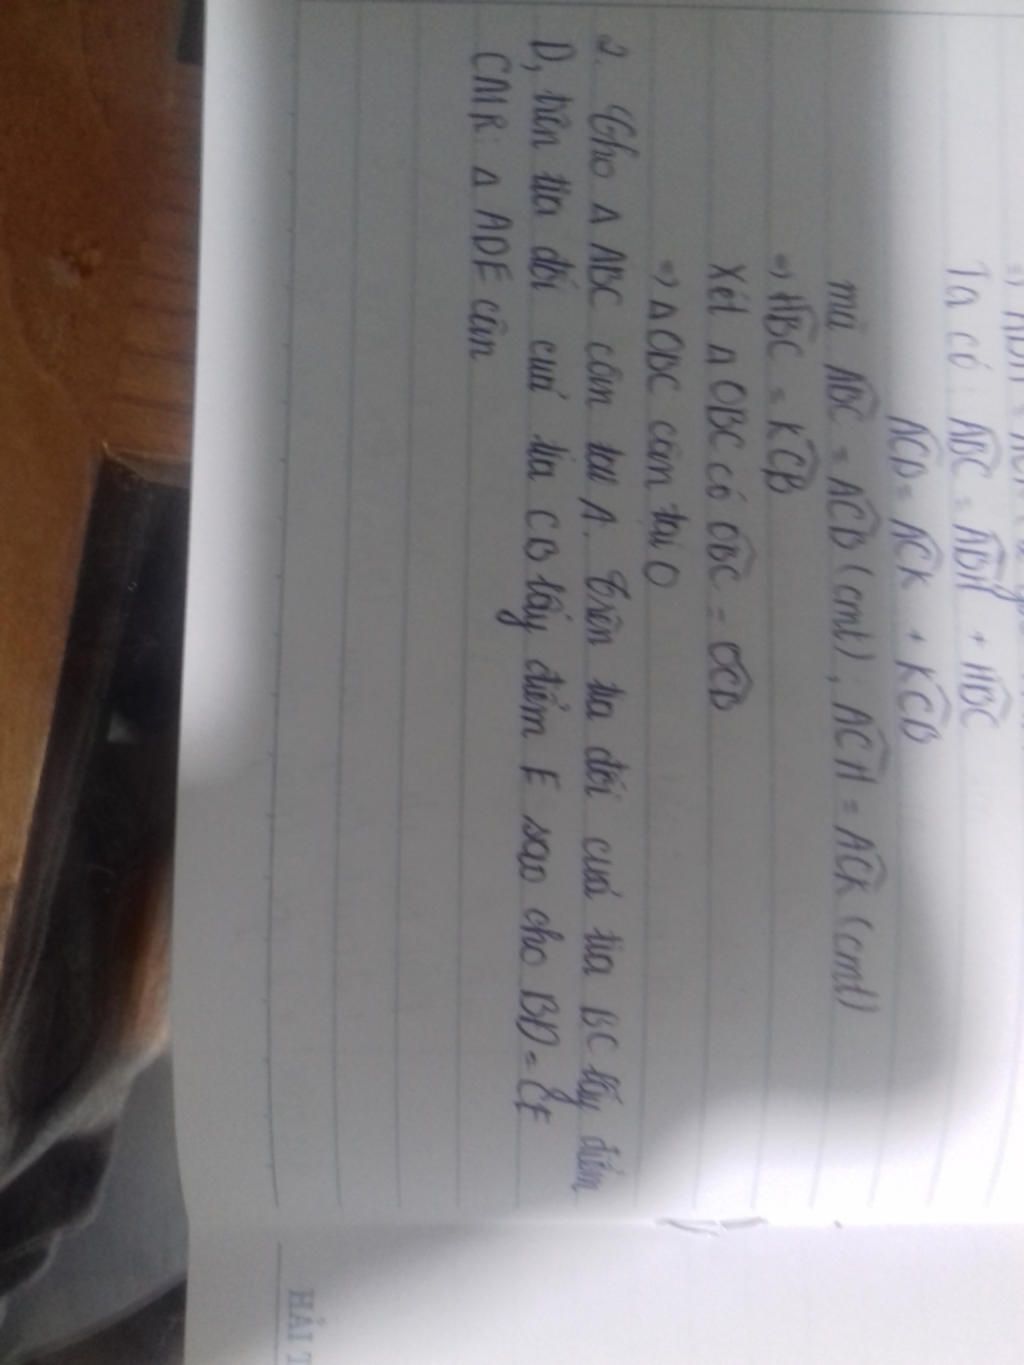 Ta có: ABC = ABH + HBC
ACD = ACK + KCB
mà ABC = ACB (cmt), ACH = ACK (cmt)
=> HBC = KCB
Xét Δ OBC có OBC = OCB
=> Δ OBC cân tại O
2. Cho Δ ABC cân tại A. Trên tia đối của tia BC lấy điểm
D, trên tia đối của tia CB lấy điểm E sao cho BD = CE
CMR: Δ ADE cân
HẢI T